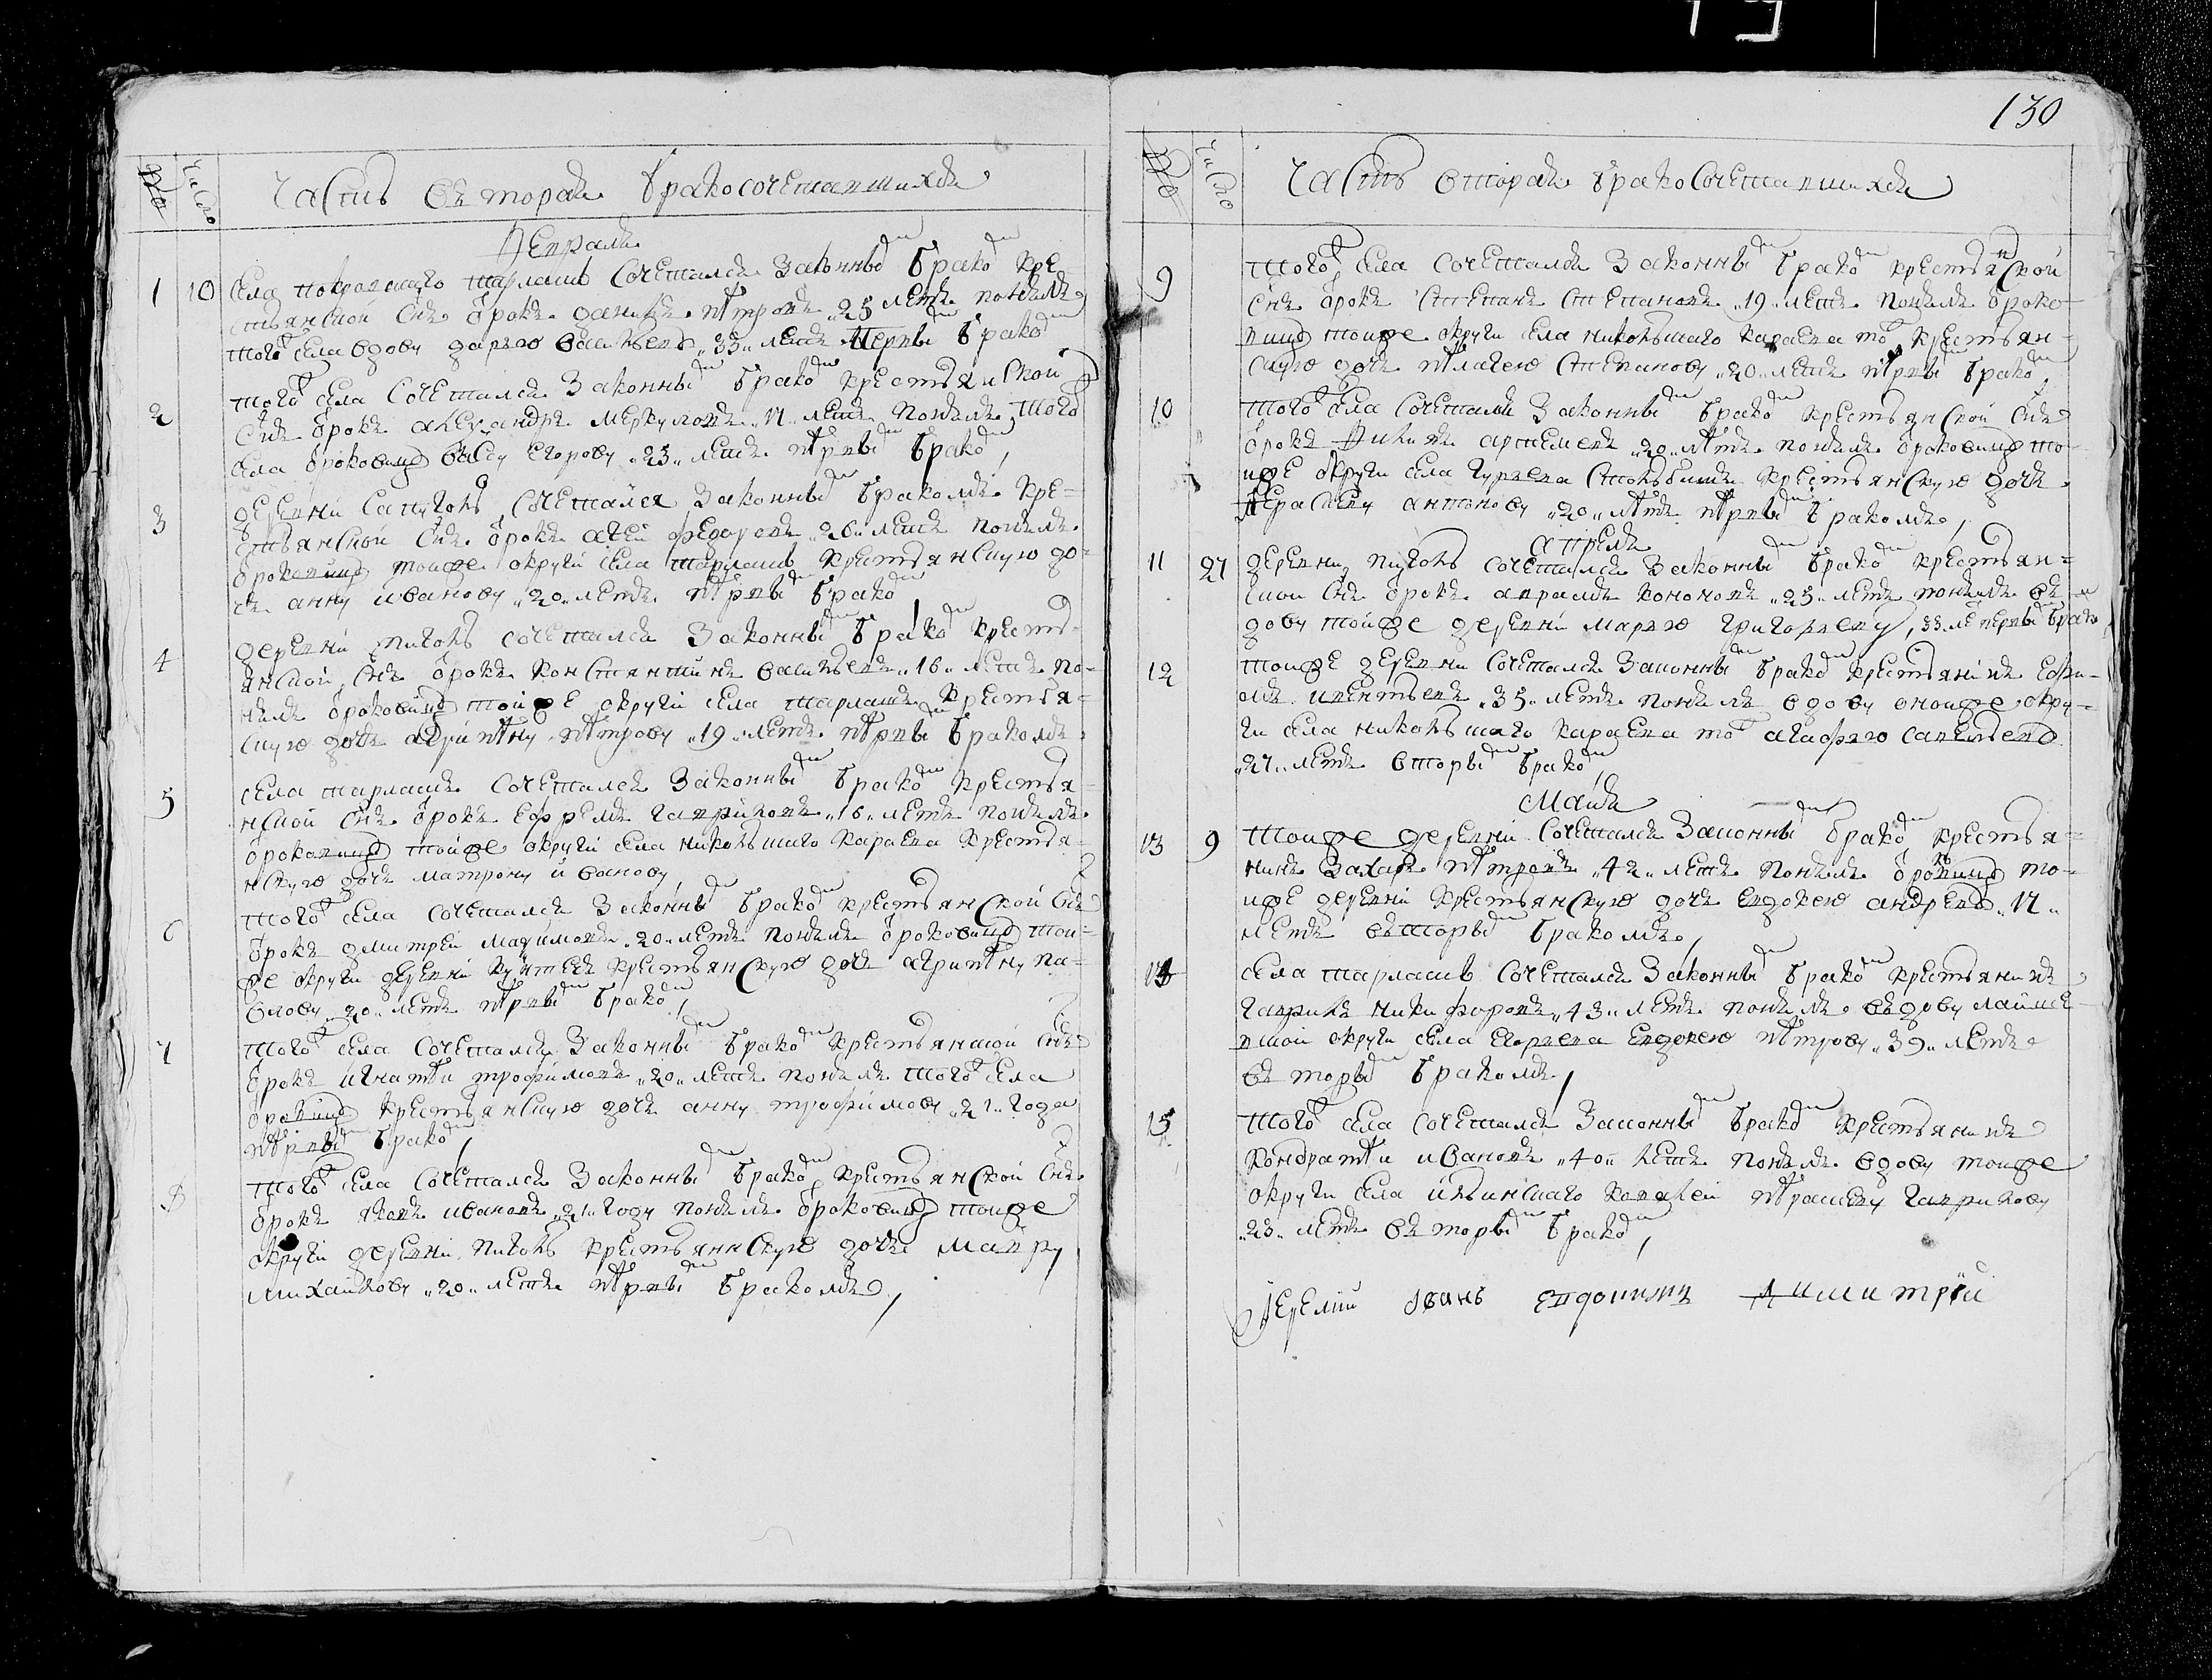 130
№
Число
Часть вторая бракосочетавшихся
Февраля
1 10 села покровскаго тарлашь сочетался законны брако кре
стьянской снъ отрокъ данила петровъ 25 летъ понялъ
того села вдову дарью васильеву 35 летъ первы брако
2 того села сочетался законны брако крестьянской
снъ отрокъ александръ меркуловъ 17 летъ понялъ того
села отроковицу васу егорову 23 летъ первы брако
3 деревни сапуголь сочетался законны бракомъ кре=
стьянской снъ отрокъ агей федоровъ 20 летъ понялъ
отроковицу тоижде округи села тарлашь крестьянскую до=
чь анну иванову 20 летъ первы брако
4 деревни пиголь сочетался законны брако крестья=
янской снъ отрокъ константинъ васильевъ 16 летъ по=
нялъ отроковицу тоижде округи села тарлашъ крестья=
нскую дочь агрипену петрову 19 летъ первы бракомъ
5 села тарлашъ сочетался законны брако крестья=
нской снъ отрокъ ефремъ гавриловъ 16 летъ понялъ
отроковицу тоижде округи села никольшаго караева крестья=
нскую дочь матрону иванову
6 того села сочетался законны брако крестьянской снъ
отрокъ дмитреи мадимовъ 20 летъ понялъ отроковицу тои=
же округи деревни крестьянскую дочь агрипену па=
влову 20 летъ первы брако
7 того села сочетался законны брако крестьянской снъ
отрокъ игнатеи трофимовъ 20 летъ понялъ того села
отроковицу крестьянскую дочь анну трофимову 21 года
первы брако
8 того села сочетался законны брако крестьянской снъ
отрокъ яковъ ивановъ 21 году понялъ отроковицу тоижде
округи деревни пиголь крестьяннскую дочь мавру
михаилову 20 летъ первы бракомъ
№
Число
Часть вторая бракосочетавшихся
9 того села сочетался законны брако крестьянской
снъ отрокъ степанъ степановъ 19 летъ понялъ отроко
вицу тоижде округи села никольшаго караева то крестьян=
скую дочь пелагею степанову 20 летъ первы брако
10 того села сочетался законны брако крестьянской снъ
отрокъ артемевъ 20 летъ понялъ отроковицу то=
ижде округи села гурьева крестьянскую дочь
парасковu антонову 20 летъ первы бракомъ
апреля
11 27 деревни пиголь сочетался законны брако крестьян=
ской снъ отрокъ аврамъ кононовъ 25 летъ понялъ въ
дову тоижде деревни марью григорьеву 33 ле первы брако
12 тоижде деревни сочетался законны брако крестьянинъ ефи=
мъ иментьевъ 35 летъ понялъ вдову оноижде окру=
ги села никольшаго караева то агафью савельеву
27 летъ вторы брако
Маия
13 9 тоижде деревни сочетался законны брако крестья=
нинъ захаръ петровъ 42 летъ понялъ отроковицу то=
ижде деревни крестьянскую дочь евдокею андрееву 17
летъ въторы бракомъ
14 села тарлашь сочетался законны брако крестьянинъ
гаврила никифоровъ 43 летъ понялъ въдову лаише
вской округи села егорьева евдокею петрову 39 летъ
въторы бракомъ
15 того села сочетался законны брако крестьянинъ
кондратеи ивановъ 40 летъ понялъ вдову тоижде
округи села ильинскаго парасковu гаврилову
23 летъ въторы брако
иерей иоанъ евдокимовъ димитрии